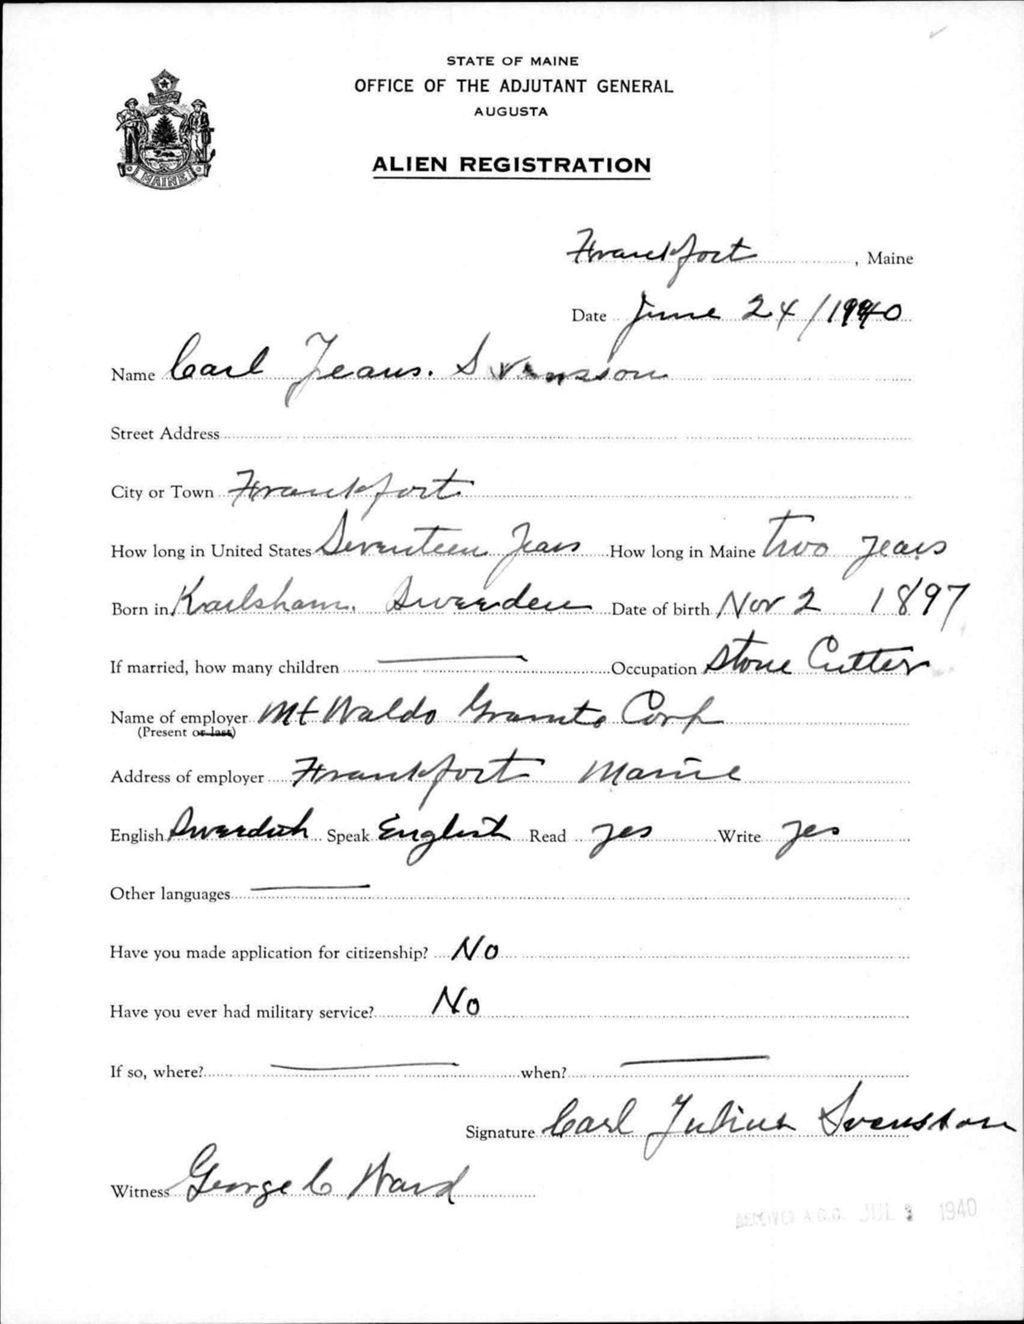 STATE OF MAINE
OFFICE OF THE ADJUTANT GENERAL
AUGUSTA
MAINE
ALIEN REGISTRATION
Frankfort, Maine
Date June 24/1940
Name Carl Jeaus. Svensson
Street Address
City or Town Frankfort
How long in United States Seventeen Years How long in Maine two years
Born in Karlsham, Sweeden Date of birth Nov 2 1897
If married, how many children — Occupation Stone Cutter
Name of employer Mt Waldo Granite Corp
(Present or last)
Address of employer Frankfort Maine
English Sweedish Speak English Read yes Write yes
Other languages —
Have you made application for citizenship? No
Have you ever had military service? No
If so, where? — when? —
Signature Carl Julius Svensson
Witness George C Ward
RECEIVED A.G.O. JUL 1940